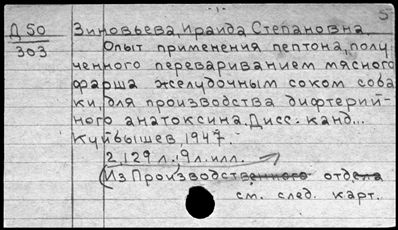 - 1 -
5
Д 50 Зиновьева, Ираида Степановна.
303 Опыт применения пептона, полу
ченного перевариванием мясного
фарша желудочным соком соба
ки, для производства дифтерий-
ного анатоксина. Дисс. канд...
Куйбышев, 1947.
2, 129 л., 9 л. илл.
(Из Производственного отдела
см. след. карт.